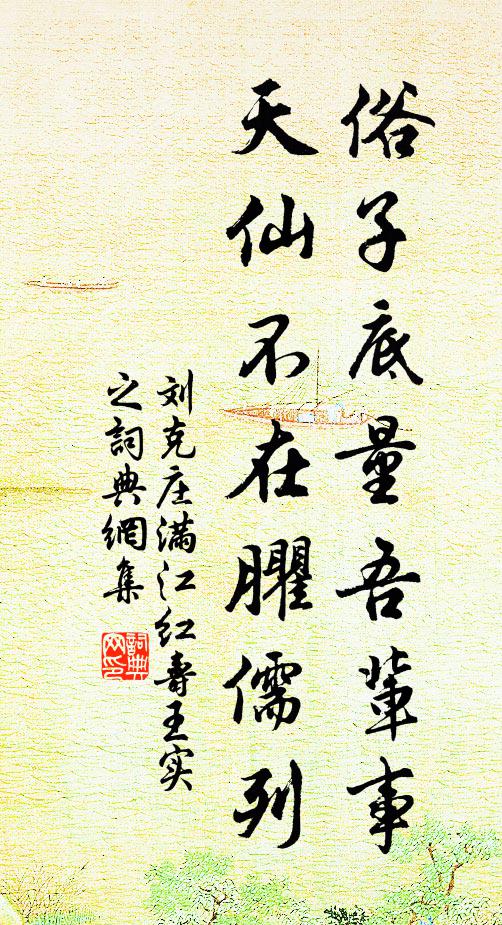 俗子底量吾輩事
天仙不在臞儒列
刘克庄满江红寿王实
之詞典網集
詞典
网印